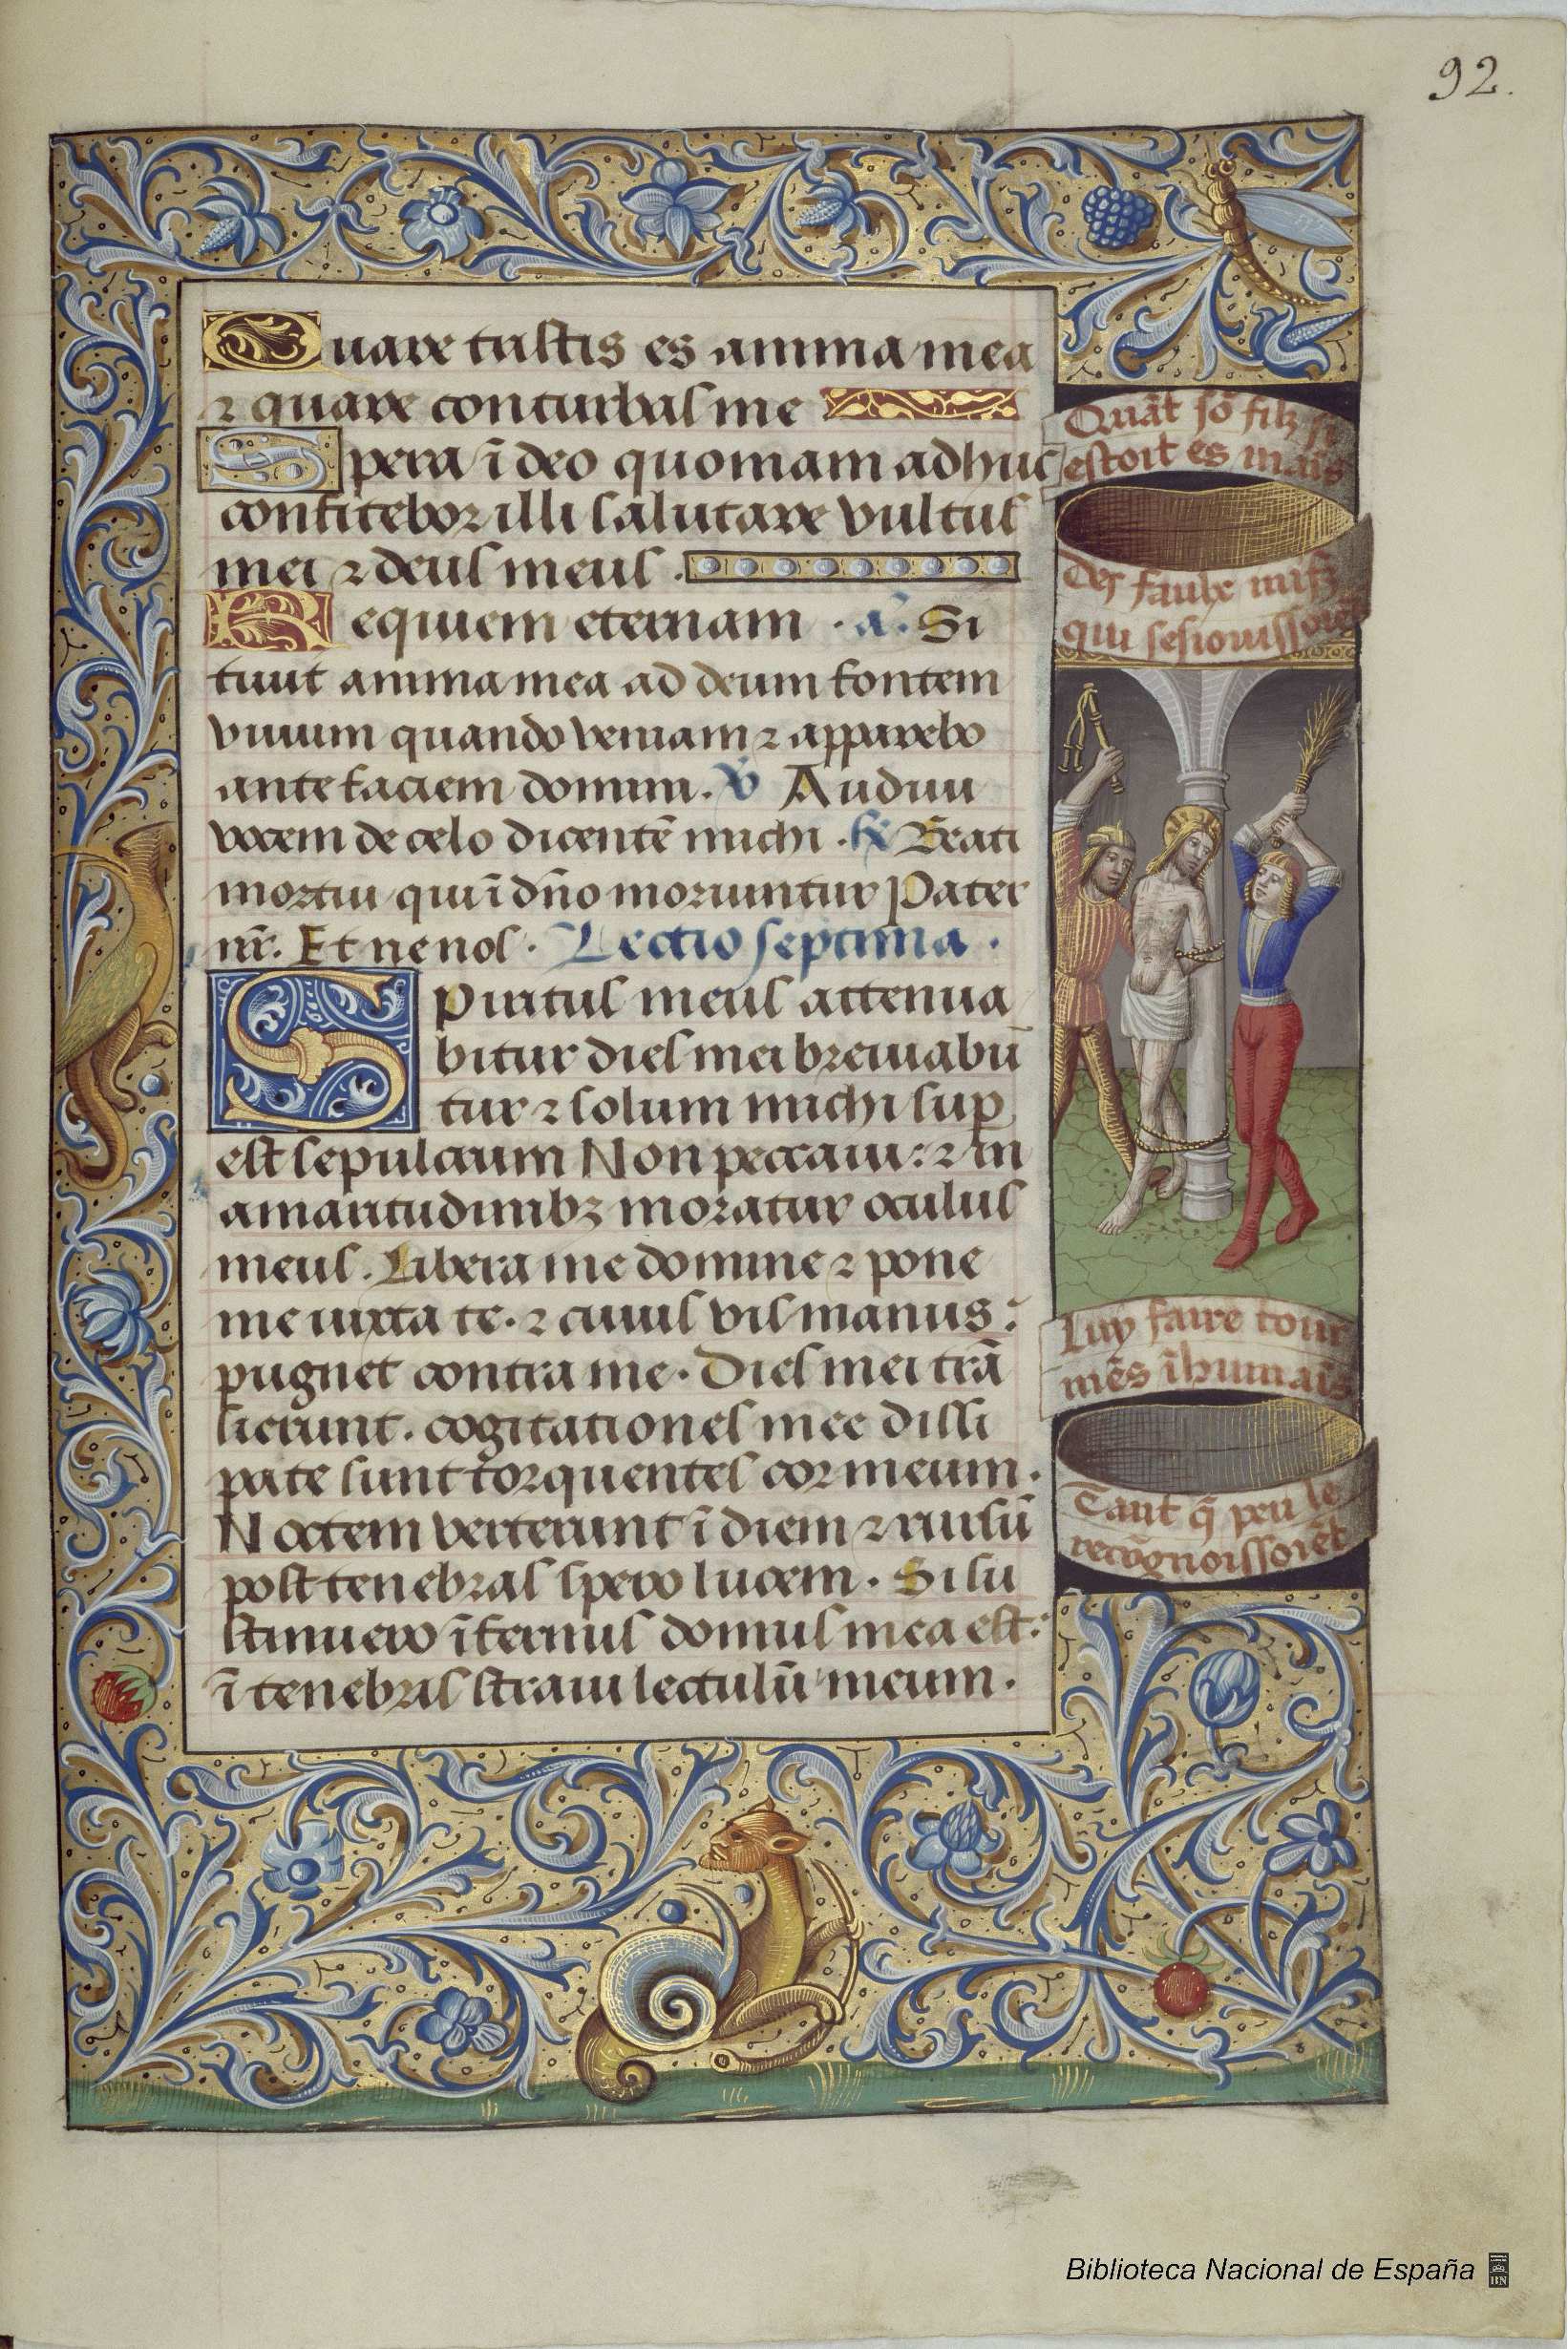 92.
Quare tristis es anima mea
⁊ quare conturbas me
Spera ī deo quoniam adhuc
confitebor illi salutare vultus
mei ⁊ deus meus .
Requiem eternam . a. Si
tiuit anima mea ad deum fontem
viuum quando veniam ⁊ apparebo
ante faciem domini. v Audiui
vocem de celo dicentē michi . R Beati
mortui qui ī dño moriuntur Pater
nr̄. Et ne nos . Lectio septima .
Spiritus meus attenua
bitur dies mei breuiabū
tur ⁊ solum michi sup
est sepulcrum Non peccaui: ⁊ in
amaritudinibꝫ moratur oculus
meus. Libera me domine ⁊ pone
me iuxta te. ⁊ cuius vis manus:
pugnet contra me. Dies mei trā
sierunt. cogitationes mee dissi
pate sunt torquentes cor meum.
Noctem verterunt ī diem ⁊ rursū
post tenebras spero lucem. Si su
stinuero īfernus domus mea est:
ī tenebris straui lectulū meum.
Quāt sō filz si
estoit es mais
Des faulx iuifz
qui sesiouissoiēt
Luy faire tour
mēs īhumaīs
Tant q̄ peu le
recōgnoissoiēt
Biblioteca Nacional de España
BN